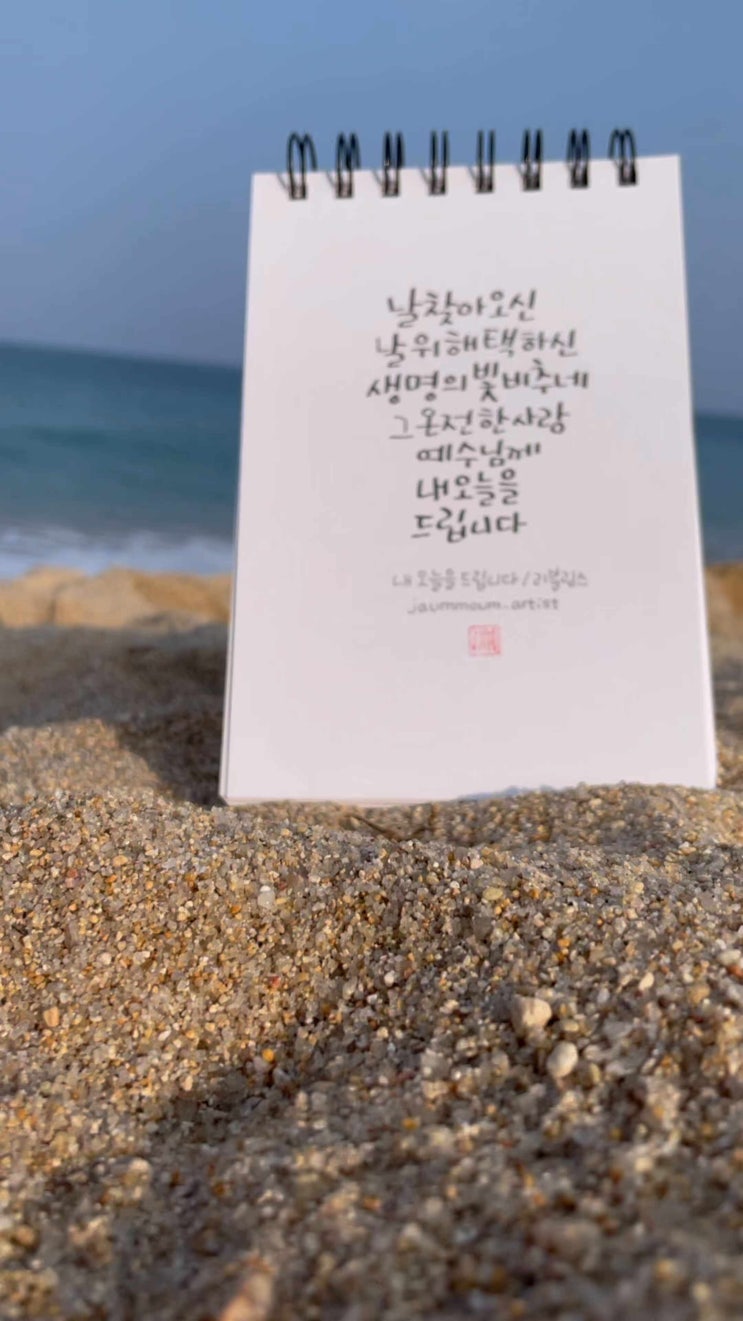 날 찾아오신
날 위해 택하신
생명의 빛 비추네
그 온전한 사랑
예수님께
내 오늘을
드립니다
내 오늘을 드립니다 / 리빌립스
jaummoum.artist